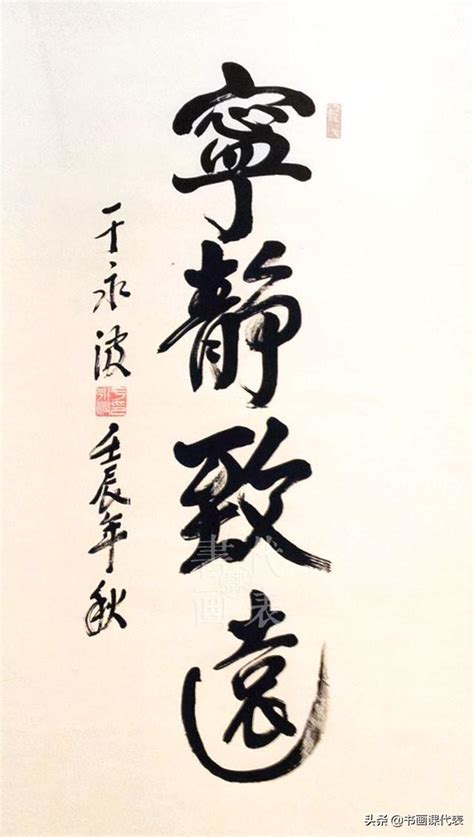 寧靜致遠
于永波
壬辰年秋
書画
課
代表
头条 @书画课代表